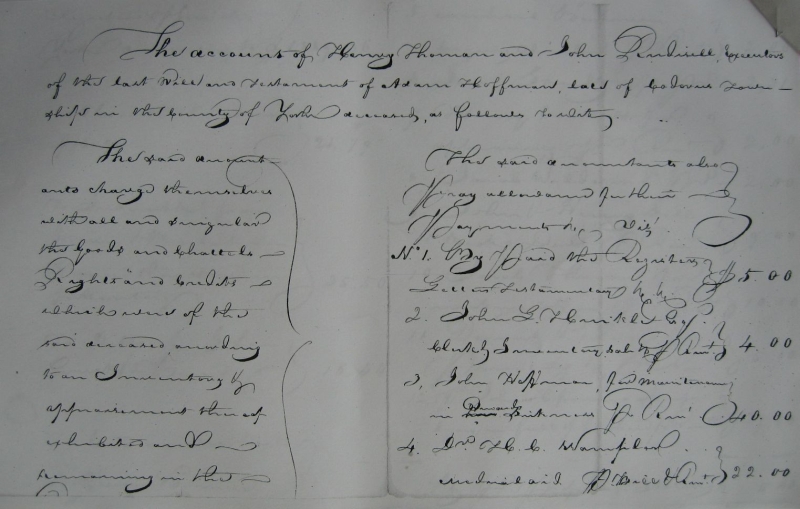 The account of Henry Thoman and John Rudisill, Executors
of the last Will and testament of Adam Hoffman, late of Codorus Town-
ship in the County of York deceased, as follows to wit,
The said account-
ants charge themselves
with all and singular
the Goods and Chattels
Rights and Credits
which were of the
said deceased, according
to an Inventory &
appraisement thereof
exhibited and
remaining in the
The said accountants also
Pray allowance for their
Payments &c, Viz'.
No 1. By Paid the Register
Letters testamentary &c &c. $5.00
2. John L. Hinkle Esq'.
Clerk'g Inventory, sale &c 4.00
3, John Hoffman, for maintenance
in sickness 40.00
4. Dr. H. C.
medical aid. 22.00